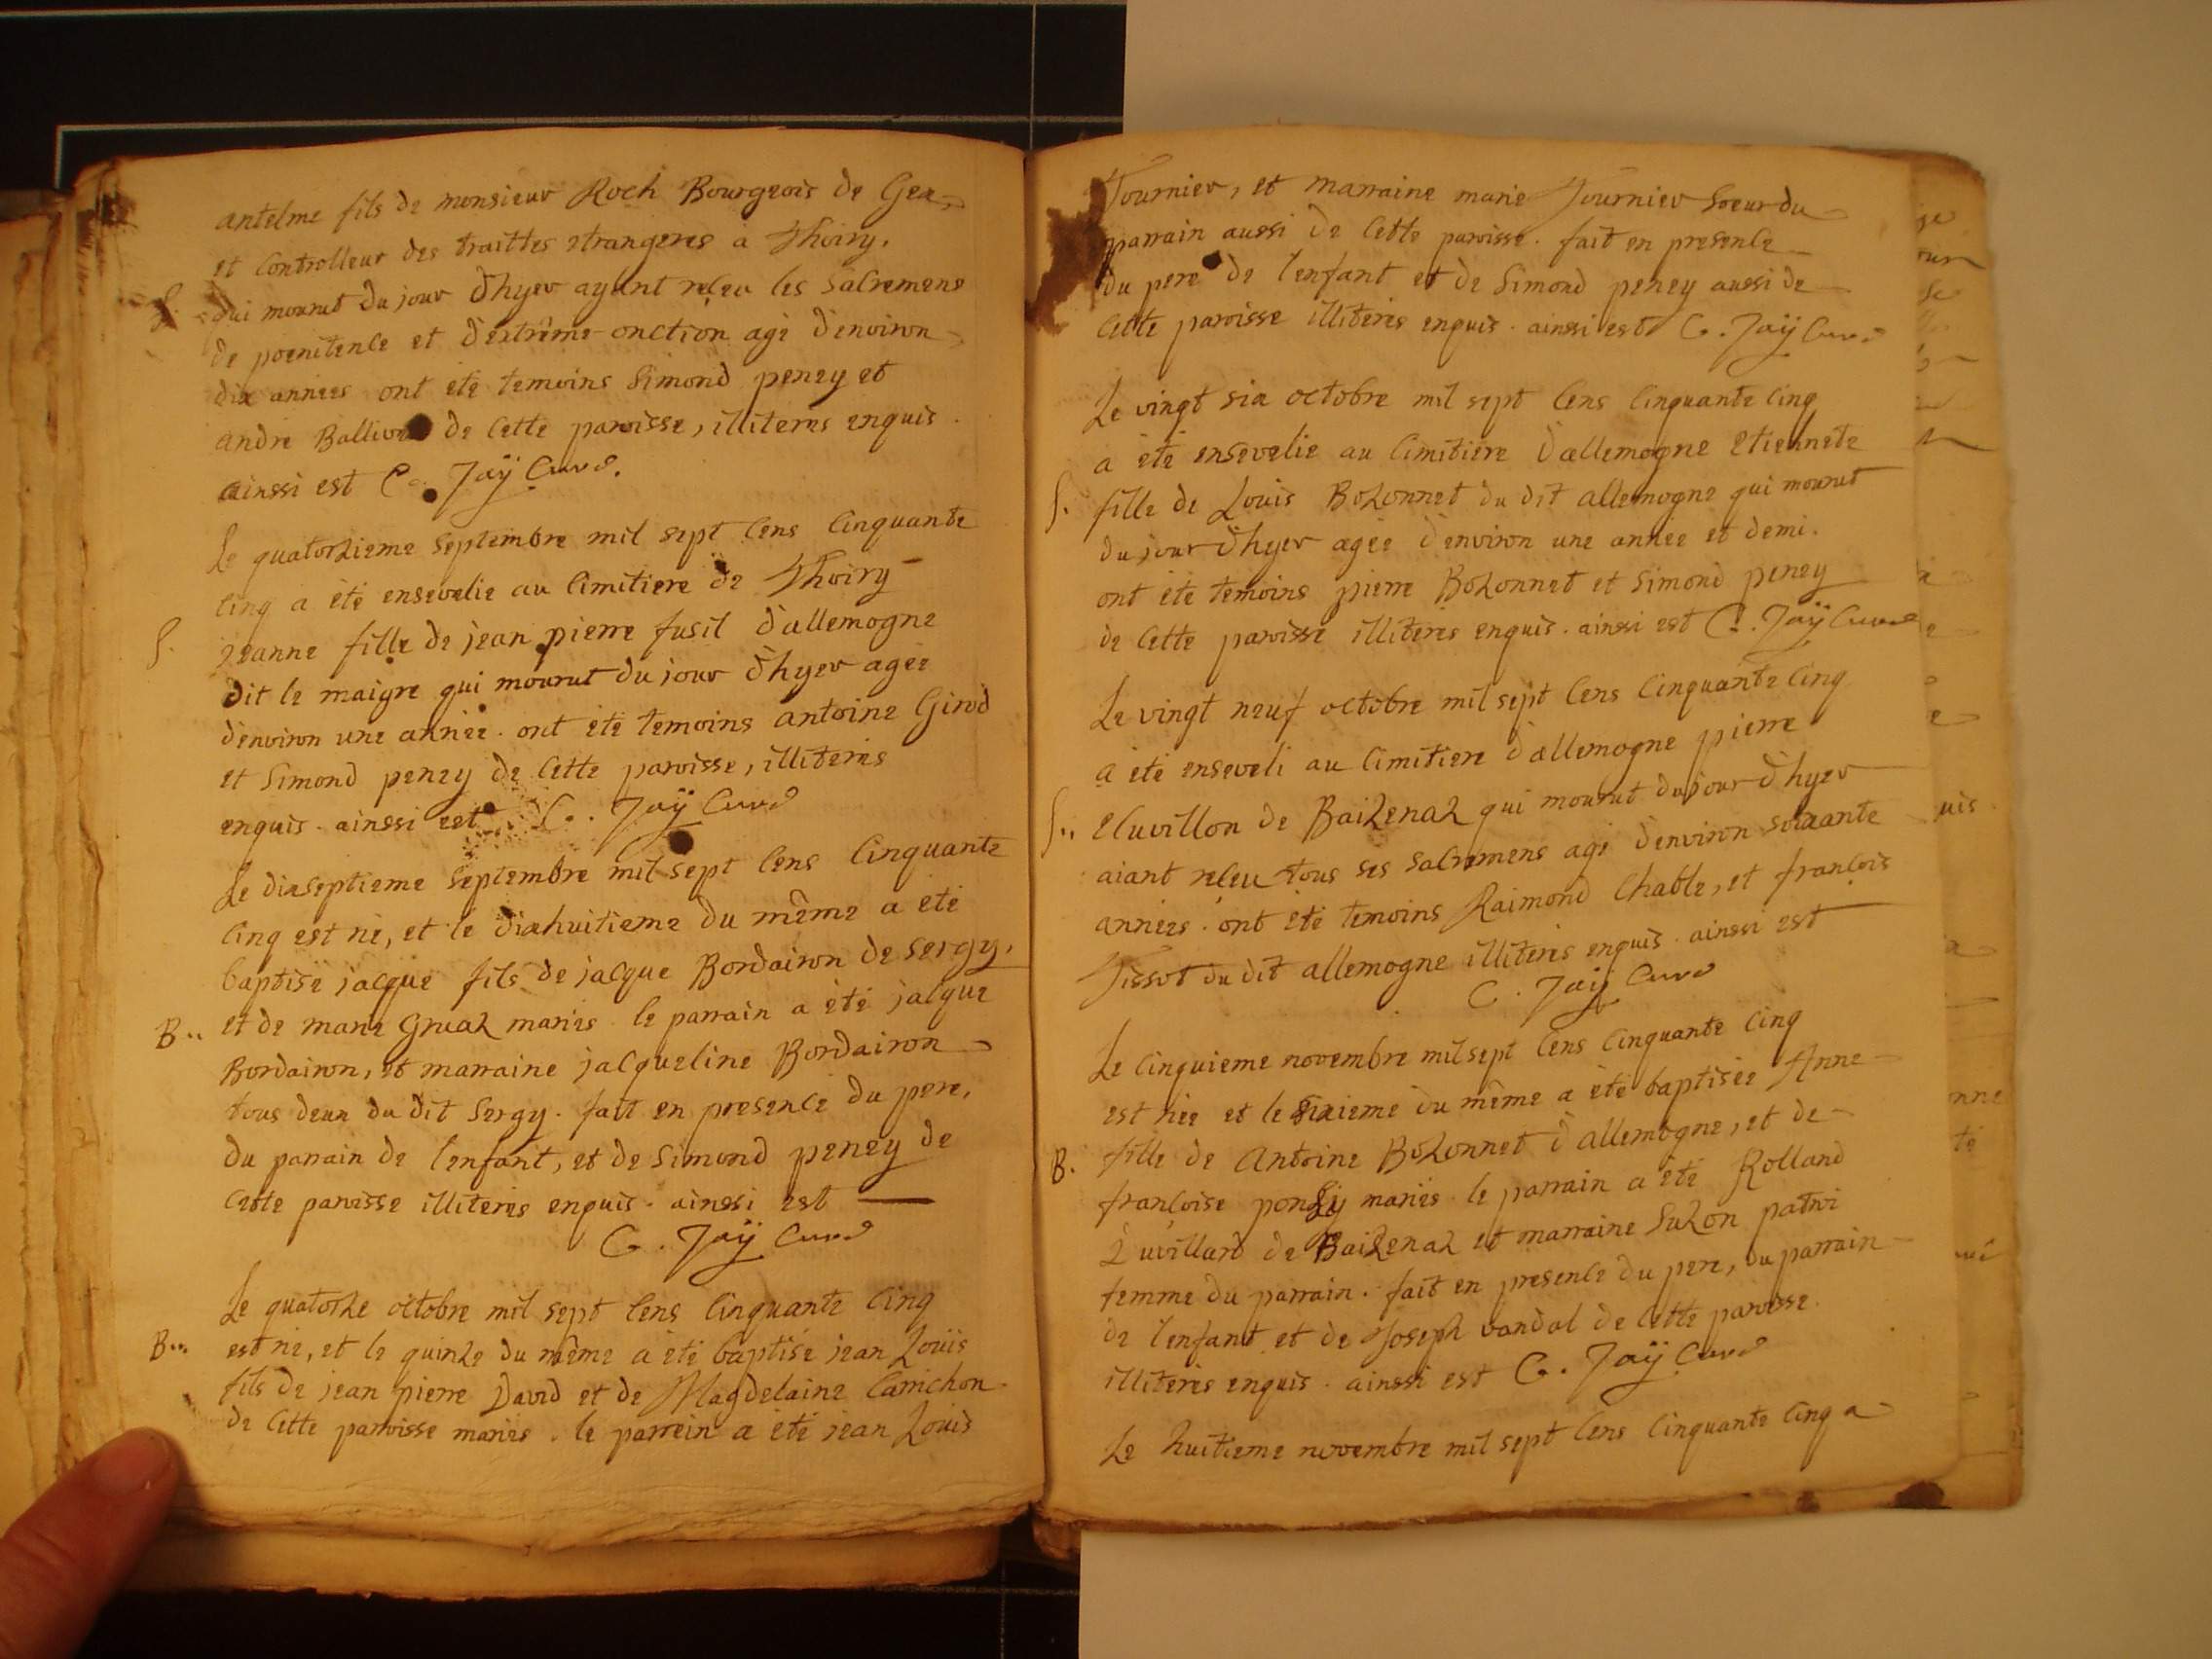 antelme fils de monsieur Roch Bourgeois de Gex
et controlleur des traittes etrangeres à Thoiry.
S. qui mourut du jour d'hyer ayant receu les sacremens
de poenitence et d'extrême-onction agé d'environ
dix années ont été temoins Simond peney et
andre de cette paroisse, illiterés enquis.
ainssi est C. Jaÿ Curé.
Le quatorzieme Septembre mil sept cens cinquante
cinq a été ensevelie au cimitiere de Thoiry
S. jeanne fille de jean pierre fusil d'allemogne
dit le maigre qui mourut du jour d'hyer agée
d'environ une année. ont été temoins antoine Girod
et Simond peney de cette paroisse, illiterés
enquis. ainssi est C. Jaÿ Curé
Le dixseptieme Septembre mil sept cens cinquante
cinq est né, et le dixhuitieme du même a été
baptisé jacque fils de jacque Bordairon de Sergy,
B.. et de marie Gruaz mariés. le parrain a été jacque
Bordairon, et marraine jacqueline Bordairon
tous deux du dit Sergy. fait en presence du pere,
du parrain de l'enfant, et de Simond peney de
cette paroisse illiterés enquis. ainssi est
C. Jaÿ Curé
Le quatorze octobre mil sept cens cinquante cinq
B... est né, et le quinze du même a été baptisé jean Louis
fils de jean pierre David et de Magdelaine Carrichon
de cette parroisse mariés. le parrein a été jean Louis
Tournier, et marraine marie Tournier Soeur du
parrain aussi de cette paroisse. fait en presence
du pere de l'enfant et de Simond peney aussi de
cette paroisse illiterés enquis. ainssi est C. Jaÿ Curé
Le vingt six octobre mil sept cens cinquante cinq
a été ensevelie au cimitiere d'allemogne etiennete
S. fille de Louis Bozonnet du dit allemogne qui mourut
du jour d'hyer agée d'environ une année et demi.
ont été temoins pierre Bozonnet et Simond peney
de cette paroisse illiterés enquis. ainssi est C. Jaÿ Curé
Le vingt neuf octobre mil sept cens cinquante cinq
a été enseveli au cimitiere d'allemogne pierre
S.. Cluvillon de Baizenaz qui mourut du jour d'hyer
aiant receu tous ses sacremens agé d'environ soixante
années. ont été temoins Raimond Chable, et françois
Tissot du dit allemogne illiterés enquis. ainssi est
C. Jaÿ Curé
Le cinquieme novembre mil sept cens cinquante cinq
est née et le sixieme du même a été baptisée Anne
B. fille de Antoine Bozonnet d'allemogne, et de
françoise mariés. le parrain a été Rolland
de Baizenaz et marraine Suzon patroi
femme du parrain. fait en presence du pere, du parrain
de l'enfant et de Joseph vandal de cette paroisse.
illiterés enquis. ainssi est C. Jaÿ Curé
Le huitieme novembre mil sept cens cinquante cinq a